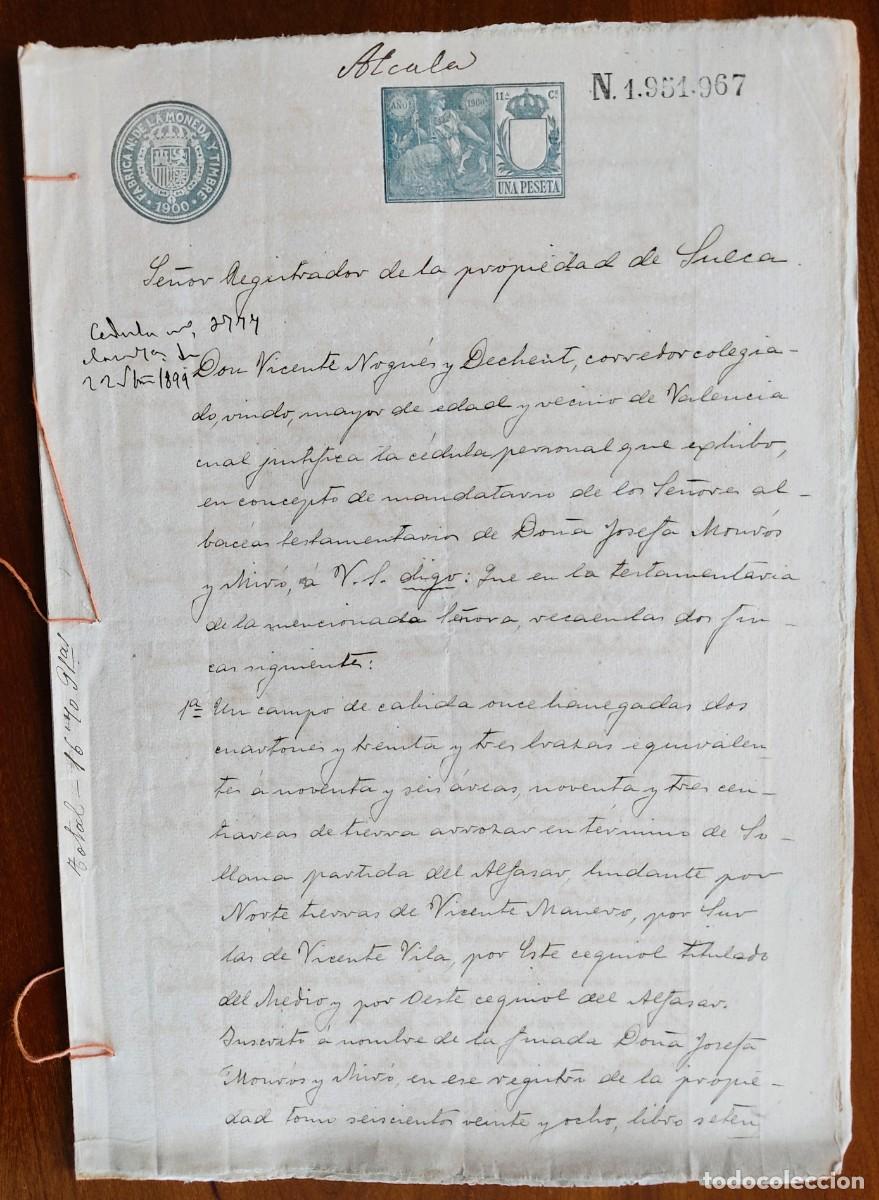 Alcala
FABRICA Nal. DE LA MONEDA Y TIMBRE
1900
AÑO 1900
11ª Cs
UNA PESETA
N. 1.951.967
Señor Registrador de la propiedad de Sueca.
Cedula no, 2777
22 1899
Don Vicente Nogués y Dechent, corredor colegia-
do, viudo, mayor de edad y vecino de Valencia
cual justifica la cédula personal que exhibo,
en concepto de mandatario de los Señores al-
baceas testamentarios de Doña Josefa Monrós
y Miró, á V.S. digo: Que en la testamentaria
de la mencionada Señora, recaen las dos fin-
cas siguientes:
1ª Un campo de cabida once hanegadas dos
cuartones y treinta y tres brazas equivalen-
tes á noventa y seis áreas, noventa y tres cen-
tiáreas de tierra arrozar en término de So-
llana partida del Alfasar, lindante por
Norte tierras de Vicente Manero, por Sur
las de Vicente Vila, por Este cequiol titulado
del Medio y por Oeste cequiol del Alfasar.
Inscrito á nombre de la finada Doña Josefa
Monrós y Miró, en ese registro de la propie-
dad tomo seiscientos veinte y ocho, libro seten
Total -
todocoleccion